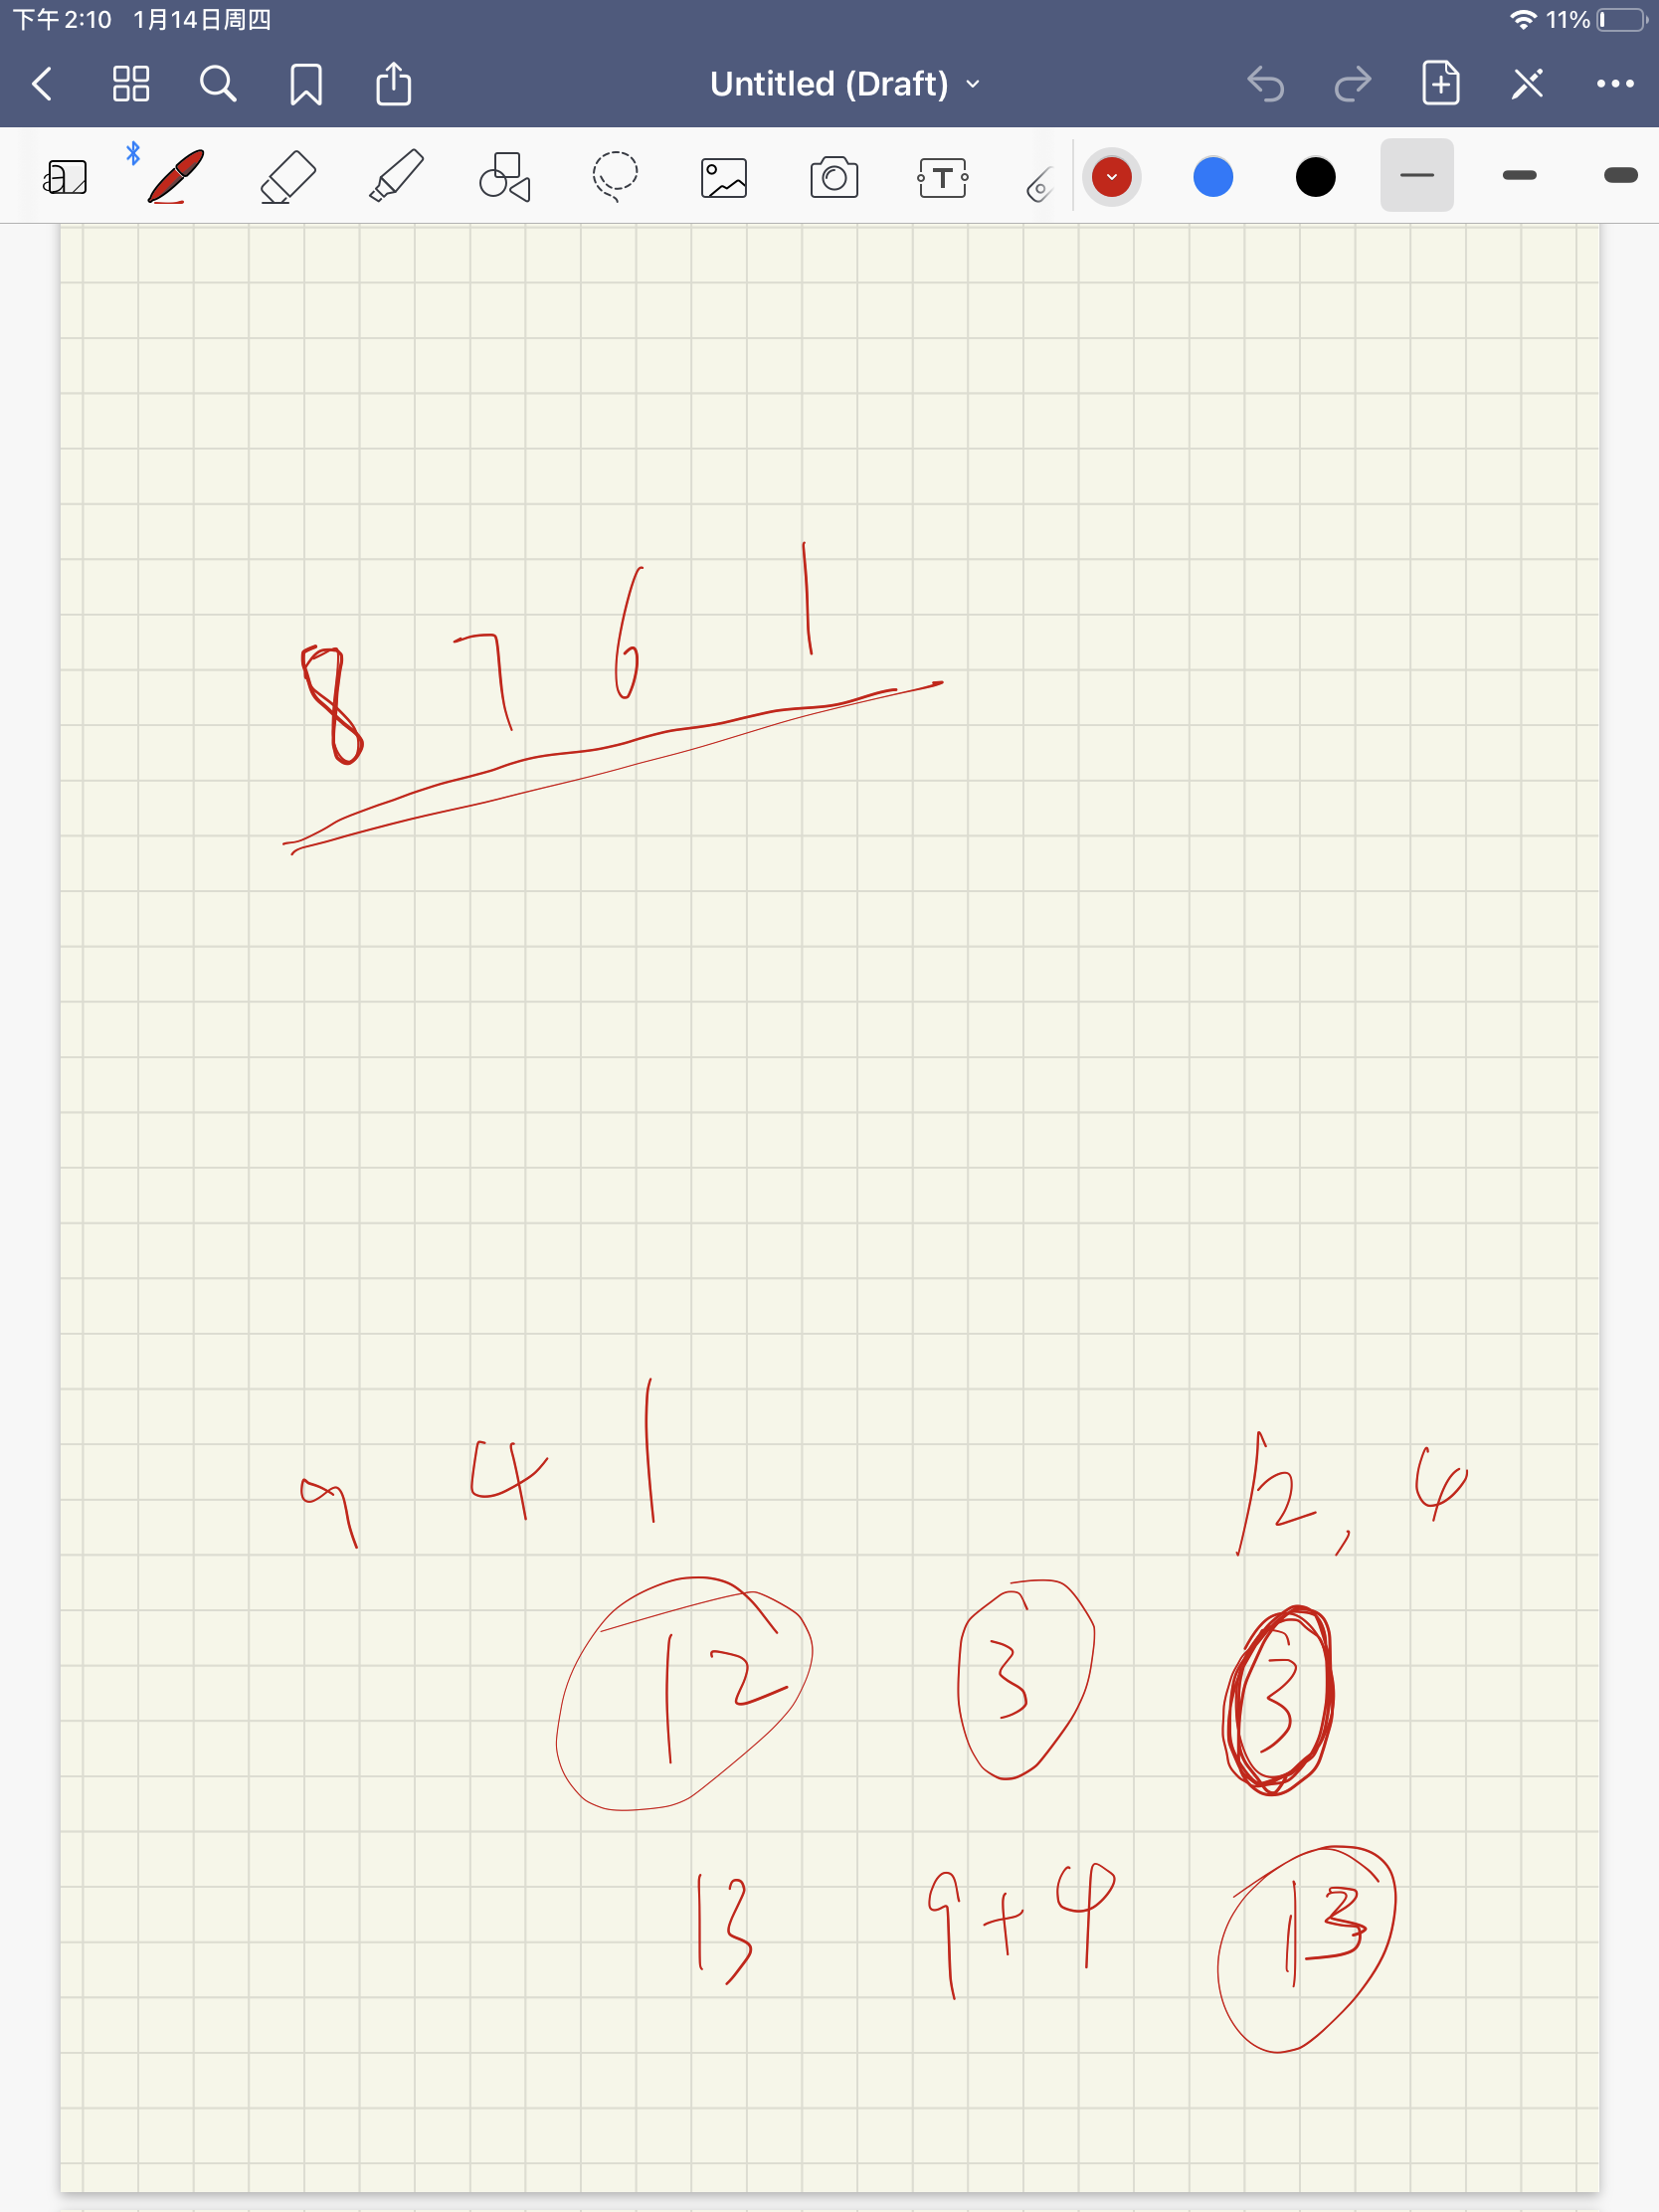 下午2:10 1月14日周四 11%
Untitled (Draft)
T
8 7 6 1
9 4 1 12, 4
12 3 3
13 9+9 13